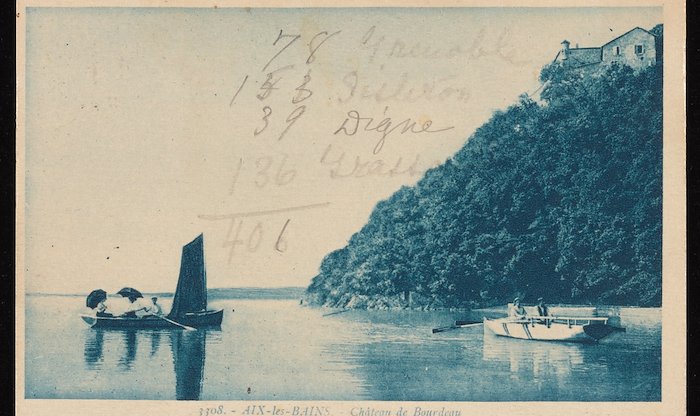 78 Grenoble
153 Sisteron
39 Digne
136 Grasse
406
3308. - AIX-les-BAINS - Château de Bourdeau